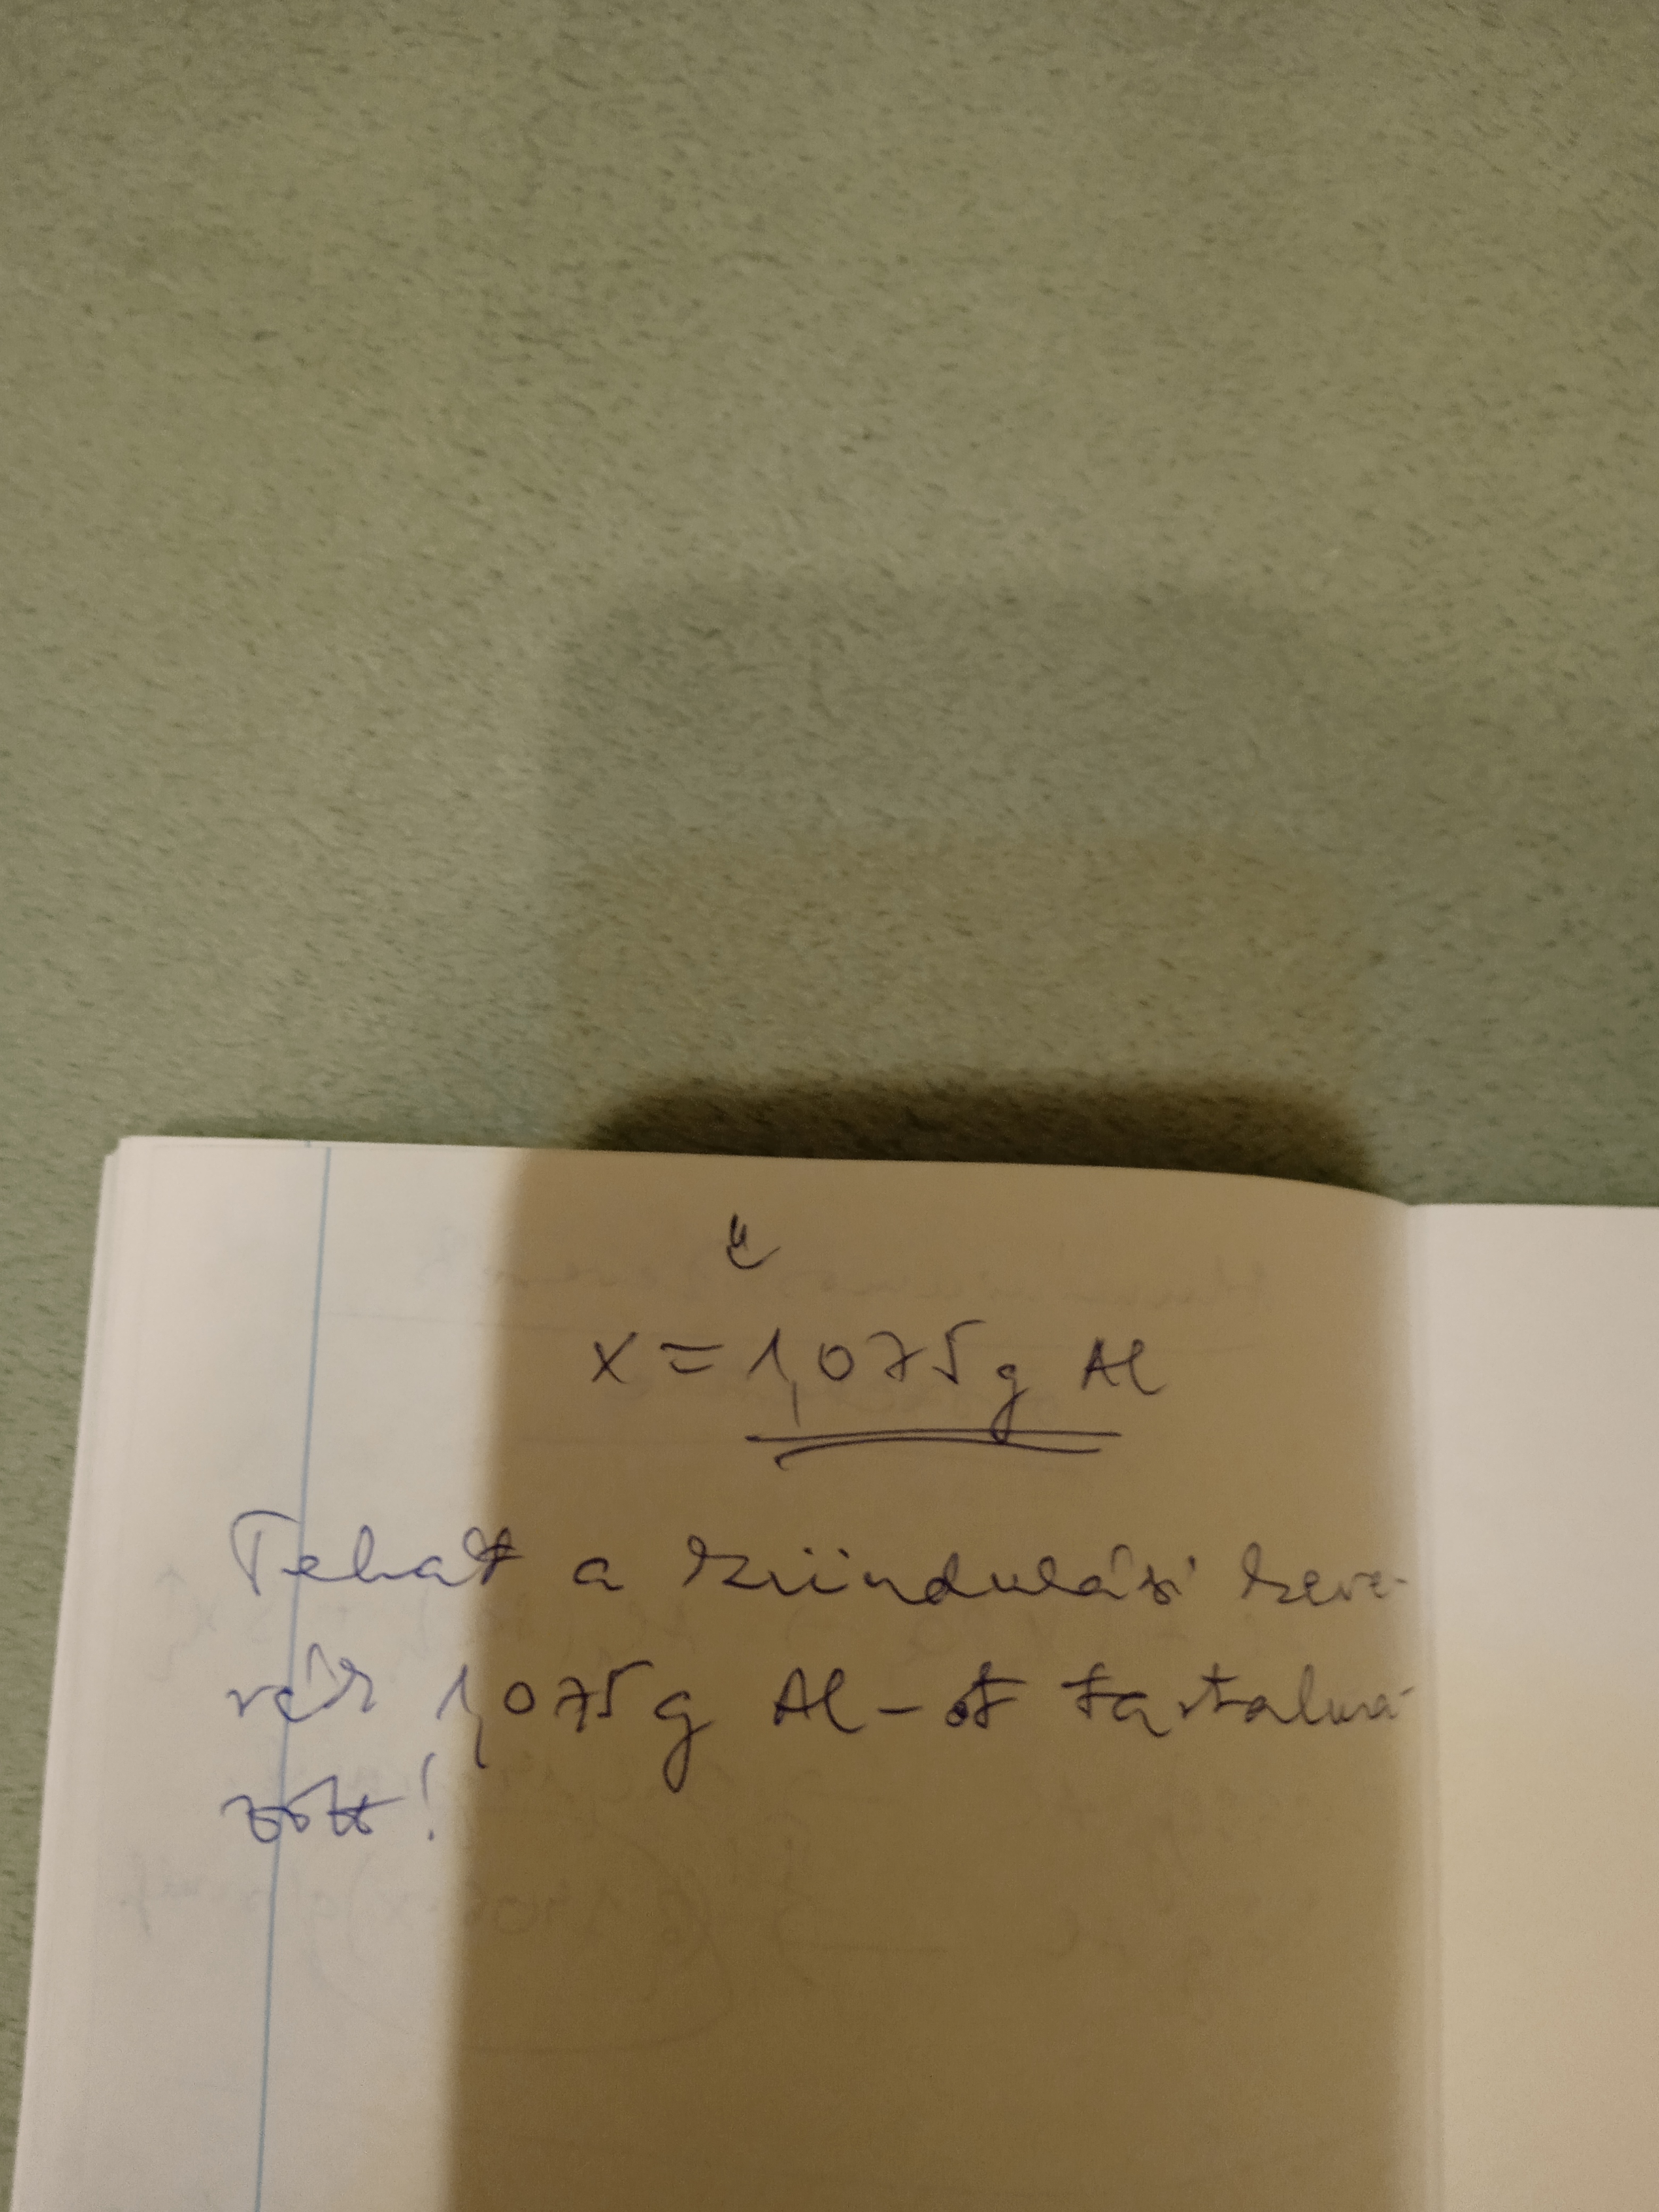 x = 1,075 g Al
Tehát a kiindulási keve-
rék 1,075 g Al-ot tartalma-
zott!